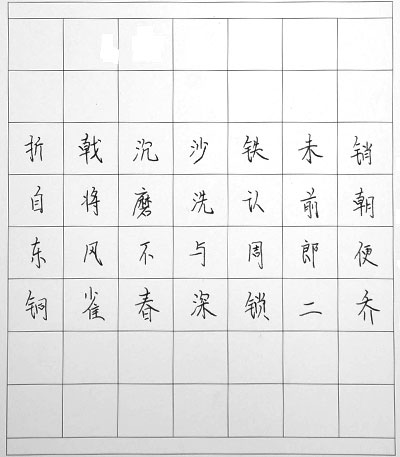 折戟沉沙铁未销
自将磨洗认前朝
东风不与周郎便
铜雀春深锁二乔